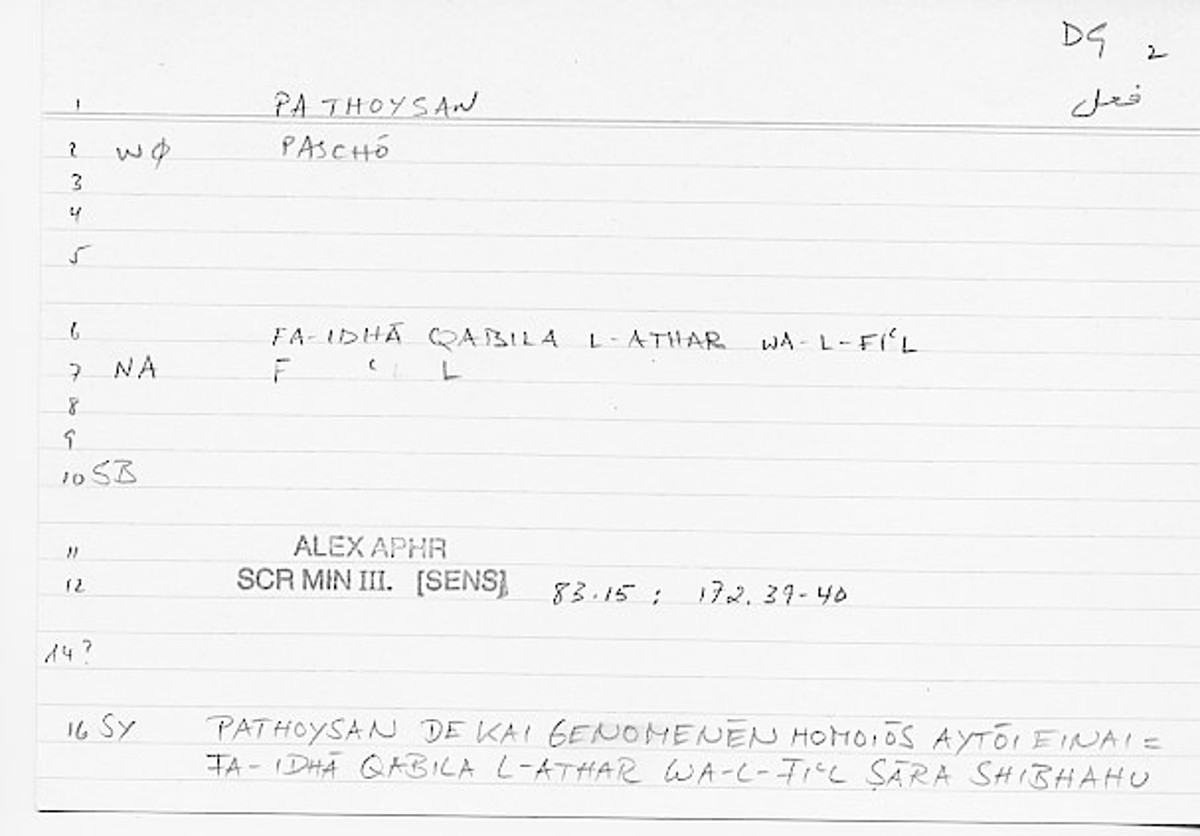 DG 2
1 PATHOYSAN فعل
2 WΦ PASCHŌ
3
4
5
6 FA-IDHĀ QABILA L-ATHAR WA-L-FIʿL
7 NA F ʿ L
8
9
10 SB
11 ALEX APHR
12 SCR MIN III. [SENS] 83.15 : 172.39-40
14?
16 SY PATHOYSAN DE KAI GENOMENĒN HOMOIŌS AYTŌI EINAI =
FA-IDHĀ QABILA L-ATHAR WA-L-FIʿL ṢĀRA SHIBHAHU